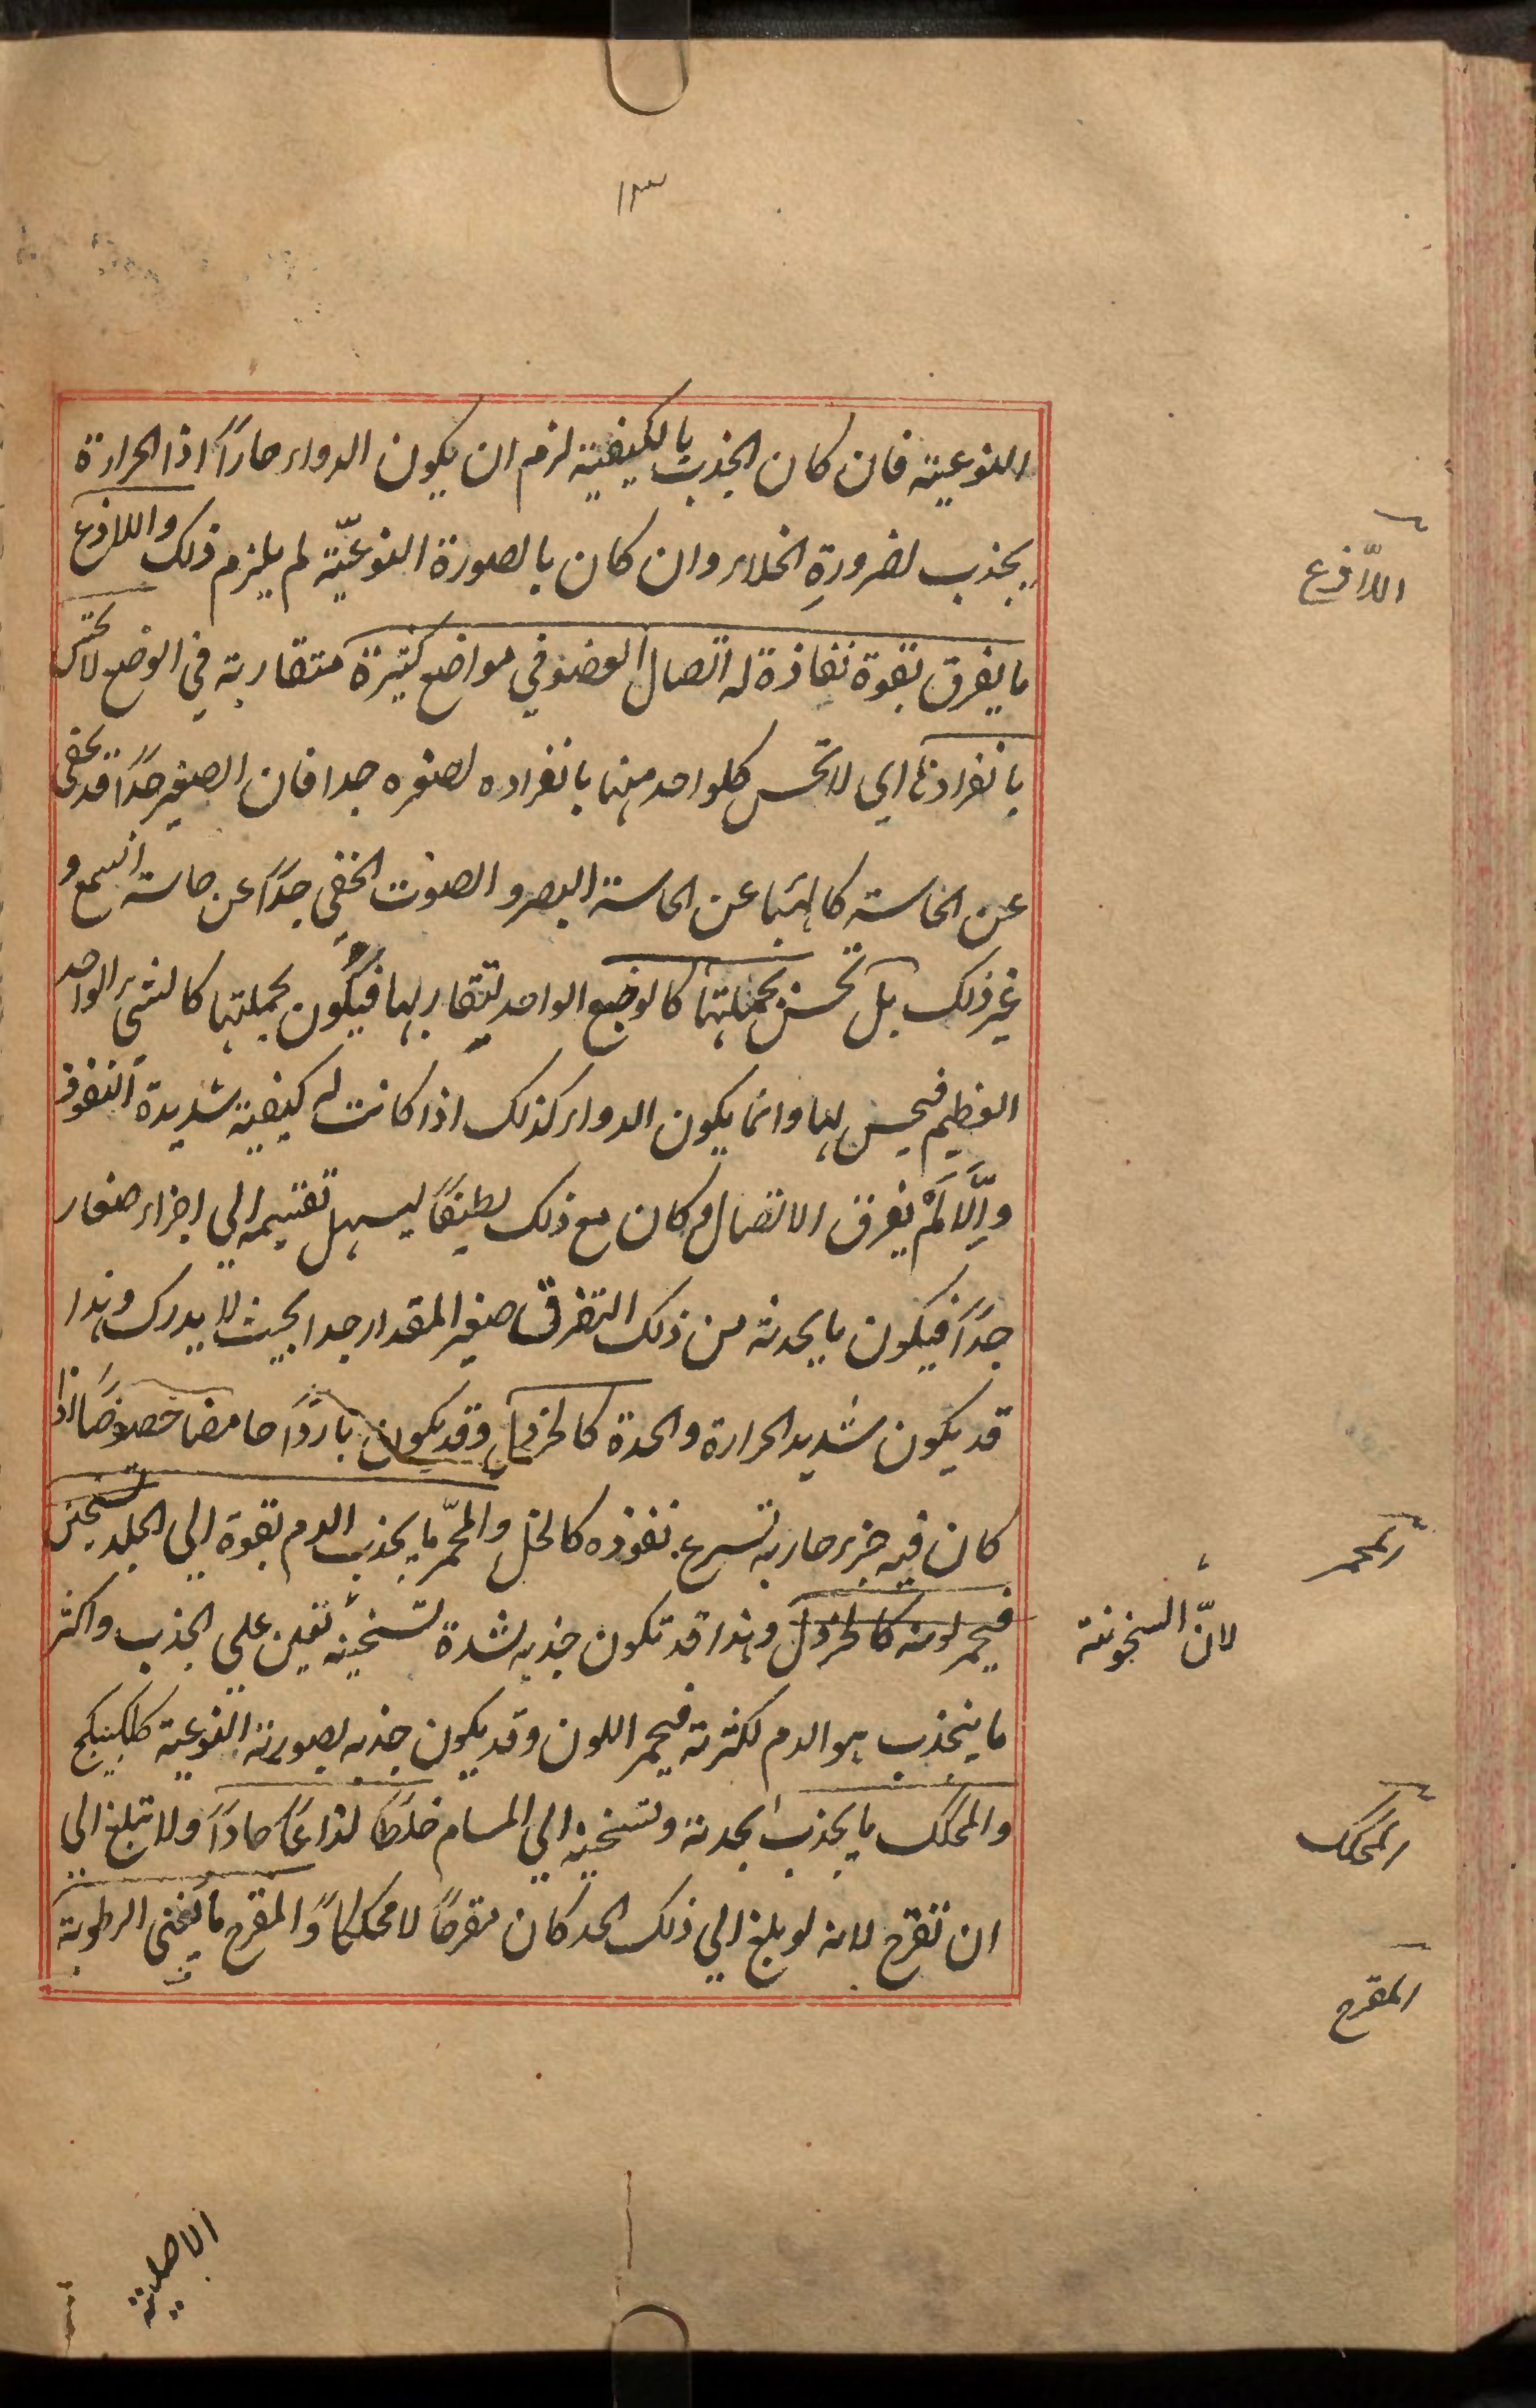 ١٣
النوعية فان كان الجذب بالكيفية لزم ان يكون الدواء حاراً اذا الحرارة
يجذب لضرورةِ الخلاء وان كان بالصورة النوعيّة لم يلزم ذلك واللاذع
ما يفرق بقوة نفاذة له اتصال العضو في مواضع كثيرة متقاربة في الوضع لا تحس
بانفرادها اي لا تحس كلواحد منها بانفراده لصغره جدا فان الصغير جدًا قد يخفى
عن الحاسة كالهبا عن الحاسة البصر والصوت الخفي جدًا عن حاسة السمع و
غير ذلك بل تحس بجملتها كالوضع الواحد لتقاربها فيكون بجملتها كالشىء الواحد
العظيم فيحس بها وانما يكون الدواء كذلك اذا كانت له كيفية شديدة النفوذ
وإلّا لَمْ يفرق الاتصال وكان مع ذلك لطيفًا ليسهل تقسيمه الي اجزاء صغار
جدًا فيكون ما يحدثه من ذلك التفرق صغير المقدار جدا بحيث لا يدرك وهذا
قد يكون شديد الحرارة والحدة كالخردل وقد يكون باردًا حامضا خصوصًا اذا
كان فيه جزء حار به تسرع نفوذه كالخل والمحمّر ما يجذب الدم بقوة الي الجلد بتسخين
فيحمر لونه كالخردل وهذا قد تكون جذبه لشدة تسخينه تعين علي الجذب واكثر
ما ينجذب هو الدم لكثرته فيحمر اللون وقد يكون جذبه بصورته النوعية كالكبيكج
والمحكك ما يجذب بحدته وتسخينه الي المسام خلطًا لذاعًا حادًا ولا تبلغ الي
ان تقرح لانه لو بلغ الي ذلك الحد كان مقرحًا لا محككا والمقرح ما يفني الرطوبة
اللاّذع
المحمر
لانّ السخونة
المحكك
المقرح
الاصلية